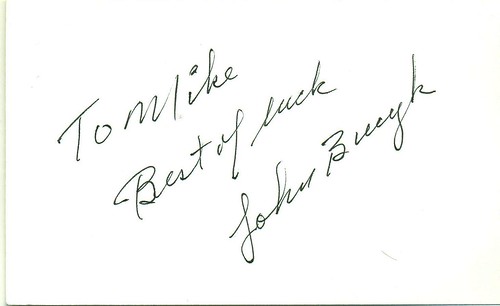 To Mike
Best of luck
John Bucyk